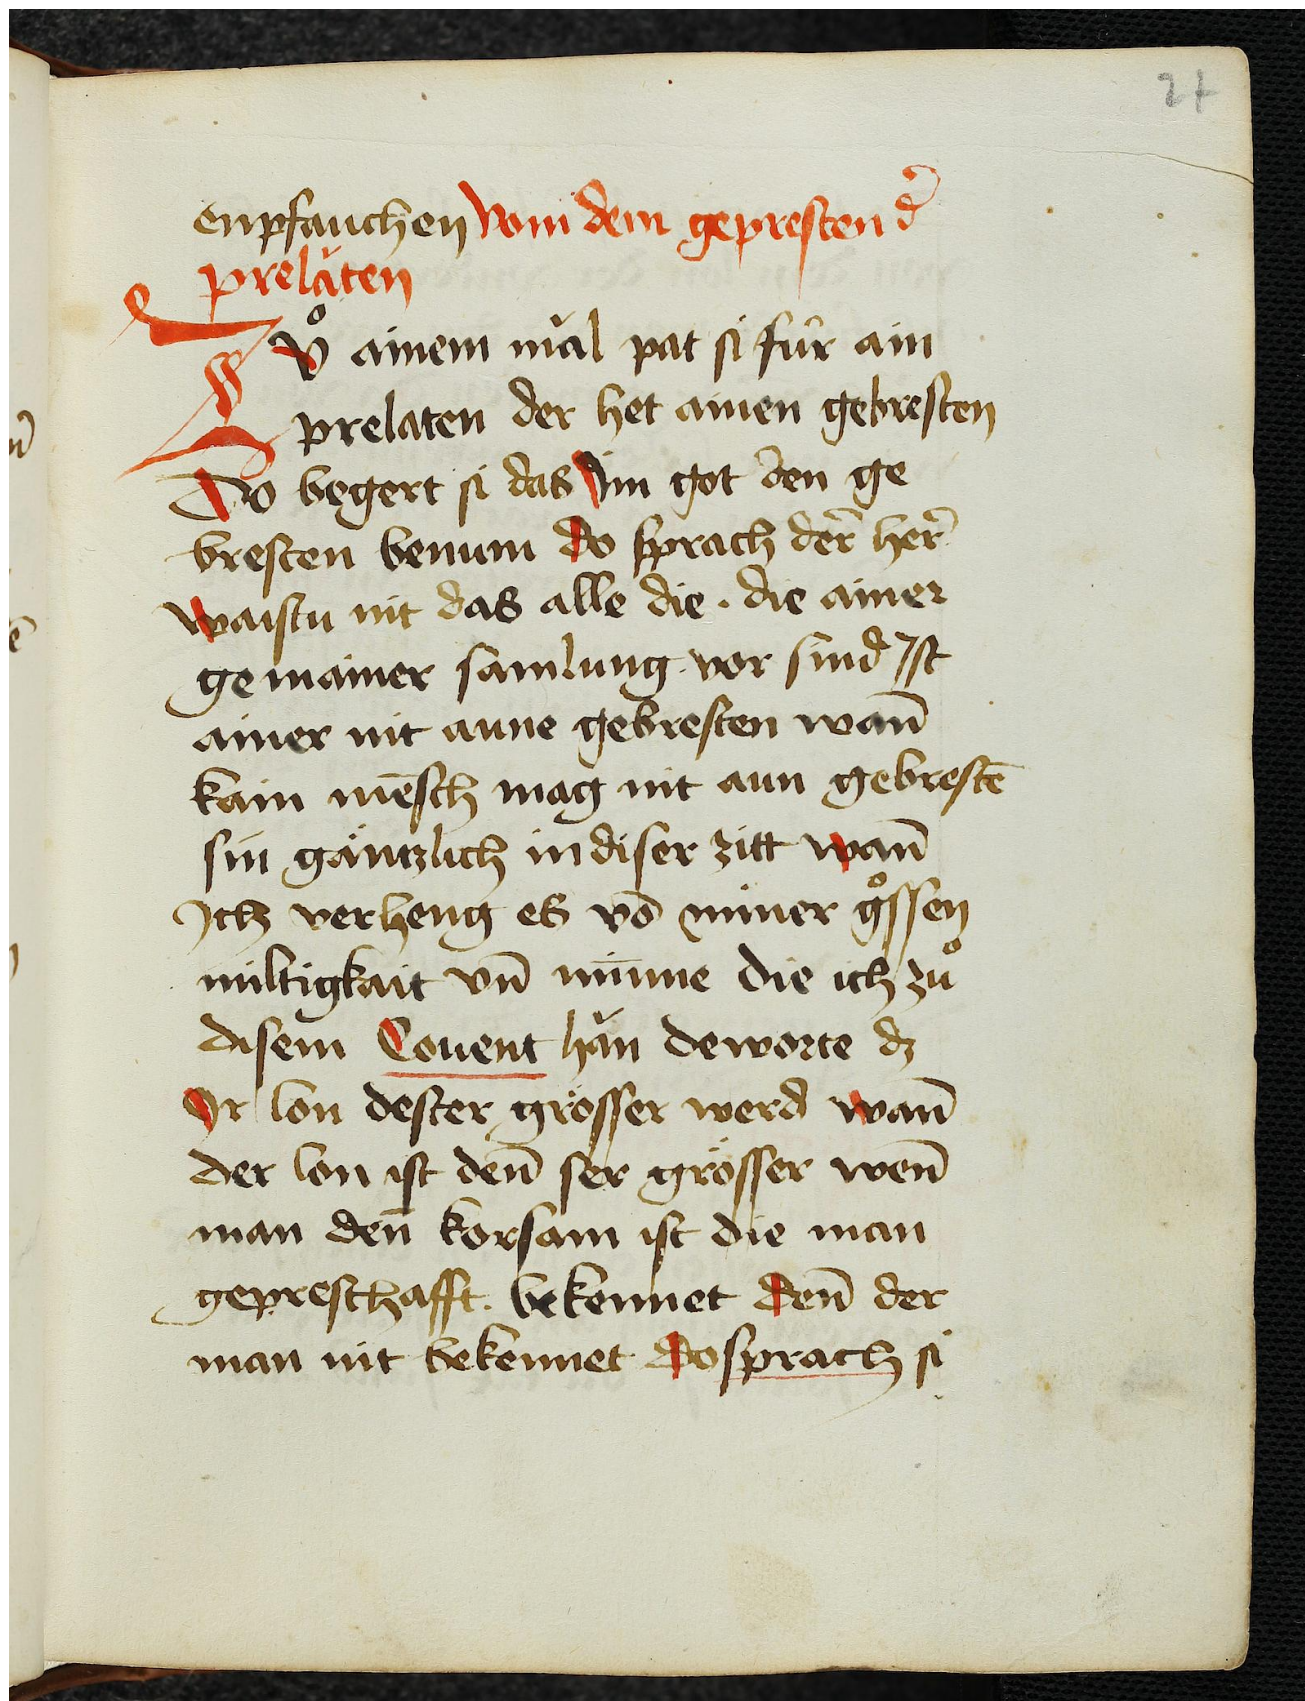 27
enpfauchen Vom dem geprestend̄
preläten
Zvͦ ainem mǎl pat si fur̂ ain
prelaten der het ainen gebresten
Do begert si das Im got den ge
bresten benum do sprach der̄ her̄
waistu nit das alle die · die ainer
gemainer samlung vor sind Ist
ainer nit aune gebresten wan̄
kain mēsch mag nit aun gebrestē
sin gäntzlich in diser zitt wan̄
Ich verheng es vō miner gͦssen
miltigkait vn̄ minne die ich zuͦ
disem Couent hǎn deworte dz
Ir lon dester grösser werd wan̄
der lon ist den̄ ser grösser wen̄
man den̄ korsam ist die man
gepreschafft · bekennet den̄ der
man nit bekennet do sprach si